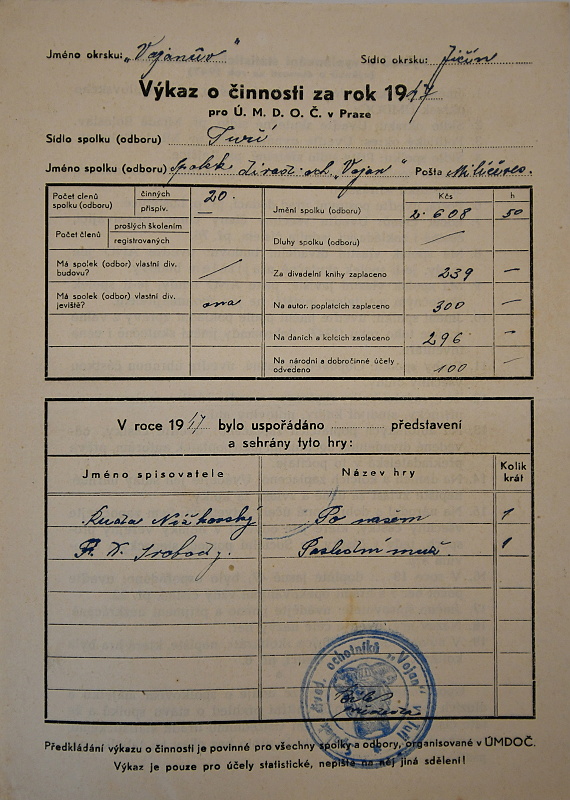 Jméno okrsku: „Vojanův" Sídlo okrsku: Jičín
Výkaz o činnosti za rok 1947
pro Ú. M. D. O. Č. v Praze
Sídlo spolku (odboru) Tuří
Jméno spolku (odboru) Spolek divad. och. „Vojan" Pošta Miličeves.
Počet členů spolku (odboru) činných 20.
přispív. —
Počet členů prošlých školením
registrovaných
Má spolek (odbor) vlastní div. budovu? /
Má spolek (odbor) vlastní div. jeviště? ano
Kčs h
Jmění spolku (odboru) 2.608 50
Dluhy spolku (odboru) /
Za divadelní knihy zaplaceno 239 —
Na autor. poplatcích zaplaceno 300 —
Na daních a kolcích zaplaceno 296 —
Na národní a dobročinné účely odvedeno 100 —
V roce 1947 bylo uspořádáno .............. představení
a sehrány tyto hry:
Jméno spisovatele Název hry Kolik krát
Ruda Nožkovský Po našem 1
F. X. Svobody. Poslední muž. 1
ochotníků „Vojan" v Tuři
Předkládání výkazu o činnosti je povinné pro všechny spolky a odbory, organisované v ÚMDOČ.
Výkaz je pouze pro účely statistické, nepište na něj jiná sdělení!